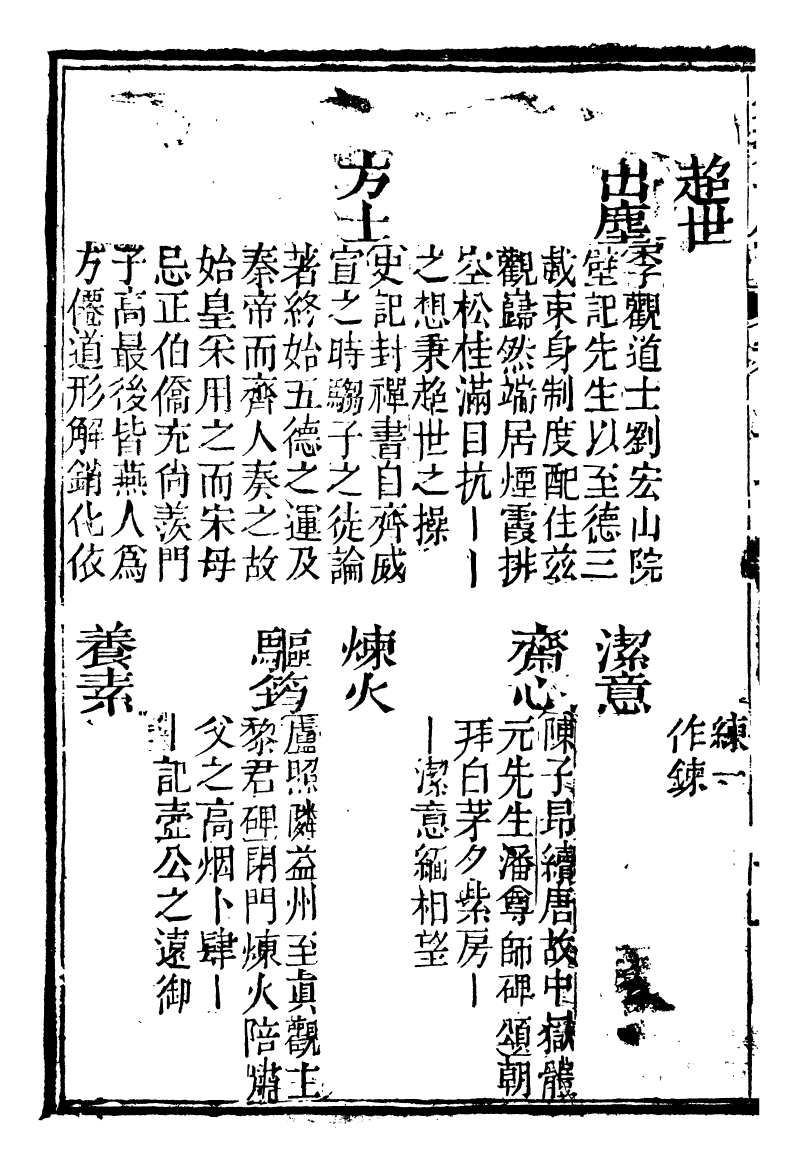 超世
出塵
李觀道士劉宏山院
壁記先生以至德三
載束身制度配住兹
觀巋然端居煙霞排
空松桂滿目抗丨丨
之想秉超世之操
方士
史記封禪書自齊威
宣之時騶子之徒論
著終始五德之運及
秦帝而齊人奏之故
始皇采用之而宋毋
忌正伯僑充尙羨門
子高最後皆燕人爲
方僊道形解銷化依
練一
作鍊
潔意
齋心
陳子昂續唐故中嶽體
元先生潘尊師碑頌朝
拜白茅夕紫房丨
丨潔意緬相望
煉火
驅筠
盧照隣益州至真觀主
黎君碑閉門煉火陪嘯
父之高烟卜肆丨
丨記壺公之遠御
養素